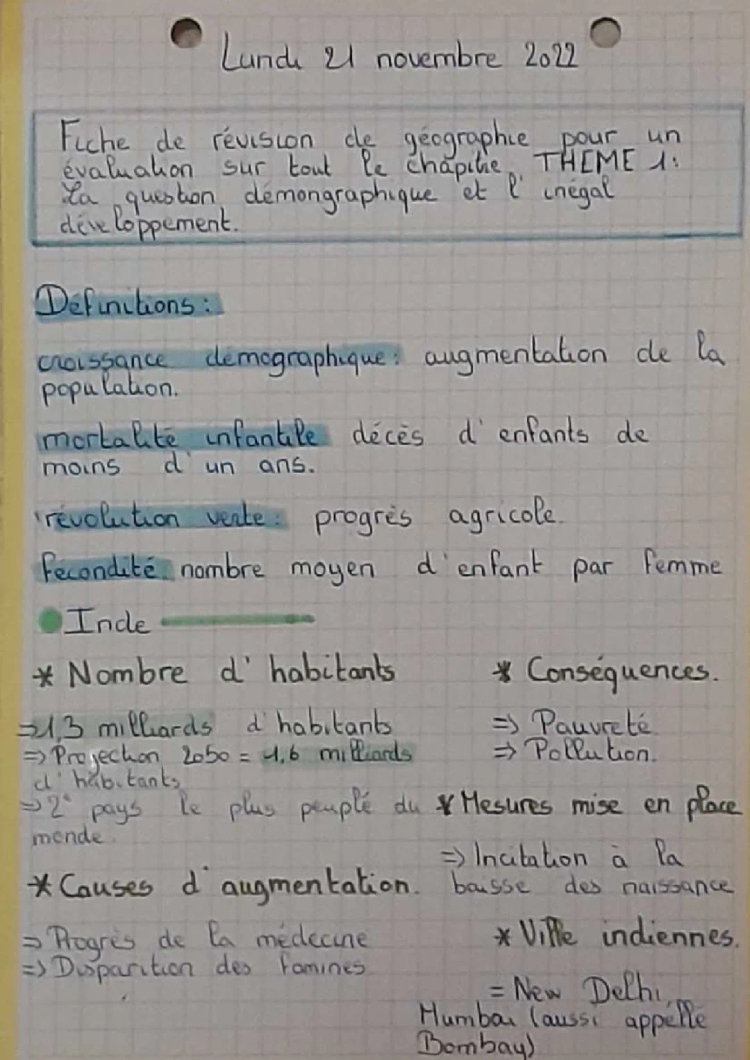 Lundi 21 novembre 2022
Fiche de révision de géographie pour un
évaluation sur tout le chapitre. THEME 1:
La question démongraphique et l'inégal
développement.
Définitions:
croissance démographique: augmentation de la
population.
mortalité infantile décès d'enfants de
moins d'un ans.
révolution verte: progrès agricole.
fécondité nombre moyen d'enfant par femme
Inde
* Nombre d'habitants
=> 1,3 milliards d'habitants
=> Projection 2050 = 1,6 milliards
d'habitants
=> 2e pays le plus peuplé du
monde.
* Causes d'augmentation.
=> Progrès de la médecine
=> Disparition des famines
* Conséquences.
=> Pauvreté
=> Pollution.
* Mesures mise en place
=> Incitation à la
baisse des naissance
* Ville indiennes.
= New Delhi,
Mumbai (aussi appellé
Bombay)